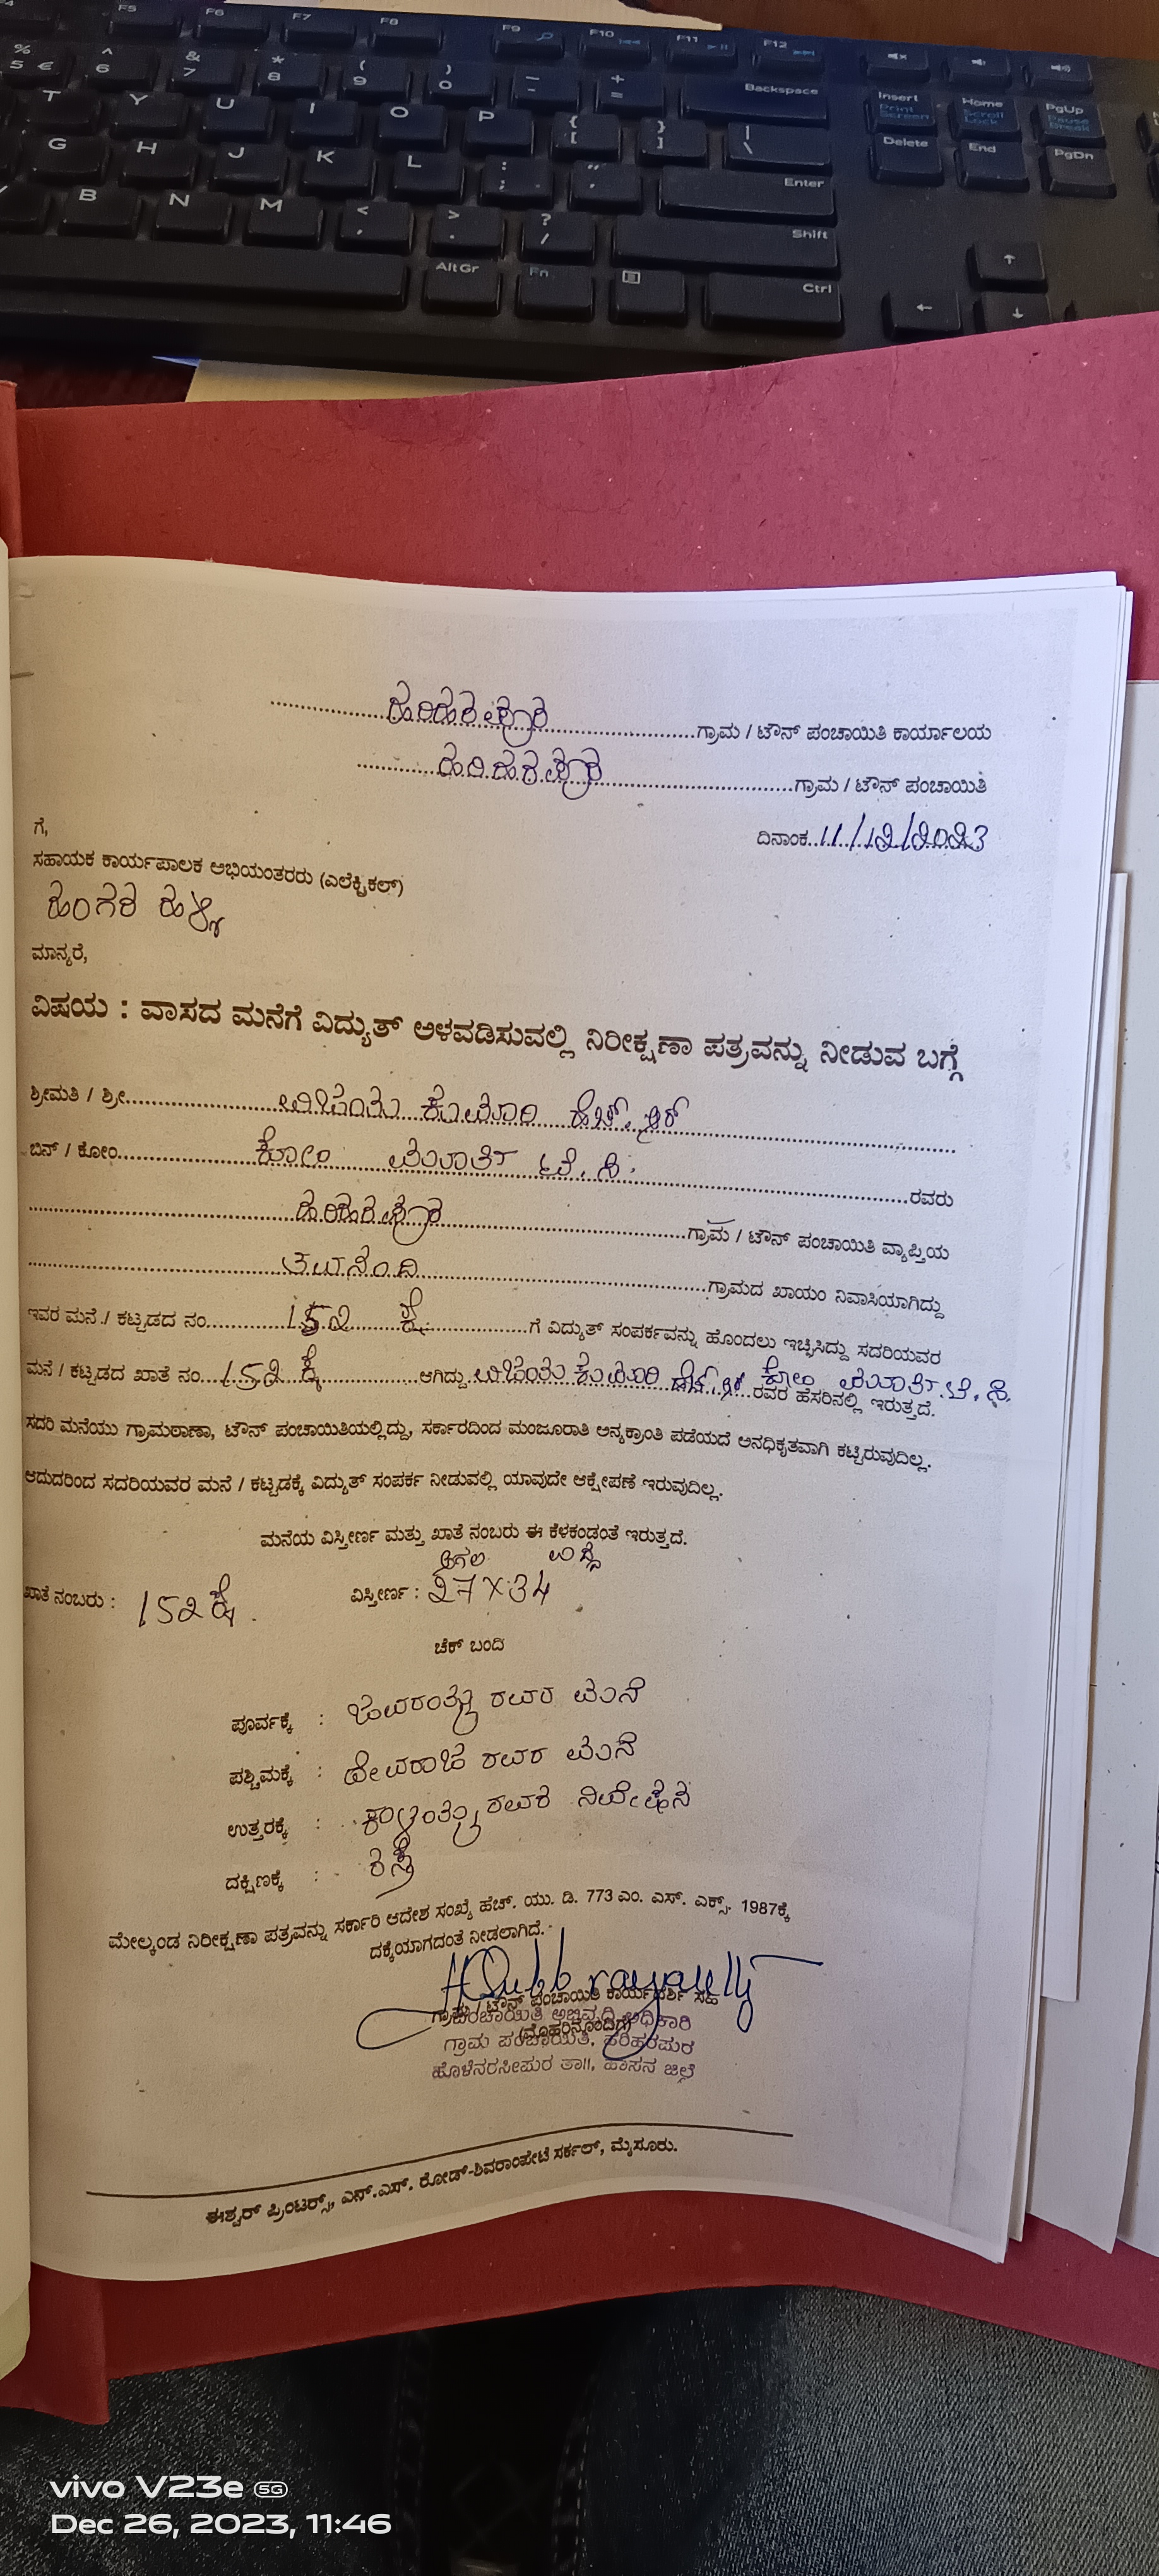 F5 F6 F7 F8 F9 F10 F11 F12
% 5 € ^ 6 & 7 * 8 ( 9 ) 0 _ - + = Backspace Insert Print Screen Home Scroll Lock PgUp Pause Break
T Y U I O P { [ } ] | \ Delete End PgDn
G H J K L : ; " ' Enter
B N M < , > . ? / Shift
Alt Gr Fn Ctrl
ಹರಿಹರಪುರ ಗ್ರಾಮ / ಟೌನ್ ಪಂಚಾಯಿತಿ ಕಾರ್ಯಾಲಯ
ಹರಿಹರಪುರ ಗ್ರಾಮ / ಟೌನ್ ಪಂಚಾಯಿತಿ
ದಿನಾಂಕ..11/12/2023
ಗೆ,
ಸಹಾಯಕ ಕಾರ್ಯಪಾಲಕ ಅಭಿಯಂತರರು (ಎಲೆಕ್ಟ್ರಿಕಲ್)
ಹಂಗರ ಹಳ್ಳಿ
ಮಾನ್ಯರೆ,
ವಿಷಯ : ವಾಸದ ಮನೆಗೆ ವಿದ್ಯುತ್ ಅಳವಡಿಸುವಲ್ಲಿ ನಿರೀಕ್ಷಣಾ ಪತ್ರವನ್ನು ನೀಡುವ ಬಗ್ಗೆ
ಶ್ರೀಮತಿ / ಶ್ರೀ ಕುಮಾರಿ ಹೆಚ್.ಆರ್
ಬಿನ್ / ಕೋಂ ಕೋಂ ರವರು
ಹರಿಹರಪುರ ಗ್ರಾಮ / ಟೌನ್ ಪಂಚಾಯಿತಿ ವ್ಯಾಪ್ತಿಯ
ಗ್ರಾಮದ ಖಾಯಂ ನಿವಾಸಿಯಾಗಿದ್ದು
ಇವರ ಮನೆ / ಕಟ್ಟಡದ ನಂ 152 ಕೈ ಗೆ ವಿದ್ಯುತ್ ಸಂಪರ್ಕವನ್ನು ಹೊಂದಲು ಇಚ್ಛಿಸಿದ್ದು ಸದರಿಯವರ
ಮನೆ / ಕಟ್ಟಡದ ಖಾತೆ ನಂ 152 ಕೈ ಆಗಿದ್ದು ಕುಮಾರಿ ಹೆಚ್.ಆರ್ ಕೋಂ ರವರ ಹೆಸರಿನಲ್ಲಿ ಇರುತ್ತದೆ.
ಸದರಿ ಮನೆಯು ಗ್ರಾಮಠಾಣಾ, ಟೌನ್ ಪಂಚಾಯಿತಿಯಲ್ಲಿದ್ದು, ಸರ್ಕಾರದಿಂದ ಮಂಜೂರಾತಿ ಅನ್ಯಕ್ರಾಂತಿ ಪಡೆಯದೆ ಅನಧಿಕೃತವಾಗಿ ಕಟ್ಟಿರುವುದಿಲ್ಲ.
ಆದುದರಿಂದ ಸದರಿಯವರ ಮನೆ / ಕಟ್ಟಡಕ್ಕೆ ವಿದ್ಯುತ್ ಸಂಪರ್ಕ ನೀಡುವಲ್ಲಿ ಯಾವುದೇ ಆಕ್ಷೇಪಣೆ ಇರುವುದಿಲ್ಲ.
ಮನೆಯ ವಿಸ್ತೀರ್ಣ ಮತ್ತು ಖಾತೆ ನಂಬರು ಈ ಕೆಳಕಂಡಂತೆ ಇರುತ್ತದೆ.
ಅಗಲ ಉದ್ದ
ಖಾತೆ ನಂಬರು : 152 ಕೈ. ವಿಸ್ತೀರ್ಣ : 27 X 34
ಚೆಕ್ ಬಂದಿ
ಪೂರ್ವಕ್ಕೆ : ರವರ ಮನೆ
ಪಶ್ಚಿಮಕ್ಕೆ : ದೇವರಾಜ ರವರ ಮನೆ
ಉತ್ತರಕ್ಕೆ : ರವರ ನಿವೇಶನ
ದಕ್ಷಿಣಕ್ಕೆ : ರಸ್ತೆ
ಮೇಲ್ಕಂಡ ನಿರೀಕ್ಷಣಾ ಪತ್ರವನ್ನು ಸರ್ಕಾರಿ ಆದೇಶ ಸಂಖ್ಯೆ ಹೆಚ್. ಯು. ಡಿ. 773 ಎಂ. ಎಸ್. ಎಕ್ಸ್. 1987ಕ್ಕೆ
ದಕ್ಕೆಯಾಗದಂತೆ ನೀಡಲಾಗಿದೆ.
ಗ್ರಾಮ / ಟೌನ್ ಪಂಚಾಯಿತಿ ಕಾರ್ಯದರ್ಶಿ ಸಹಿ
ಪಂಚಾಯಿತಿ ಅಭಿವೃದ್ಧಿ ಅಧಿಕಾರಿ
(ಮೊಹರಿನೊಂದಿಗೆ)
ಗ್ರಾಮ ಪಂಚಾಯಿತಿ, ಹರಿಹರಪುರ
ಹೊಳೆನರಸೀಪುರ ತಾ॥, ಹಾಸನ ಜಿಲ್ಲೆ
ಈಶ್ವರ್ ಪ್ರಿಂಟರ್ಸ್, ಎನ್.ಎಸ್. ರೋಡ್-ಶಿವರಾಂಪೇಟೆ ಸರ್ಕಲ್, ಮೈಸೂರು.
vivo V23e 5G
Dec 26, 2023, 11:46